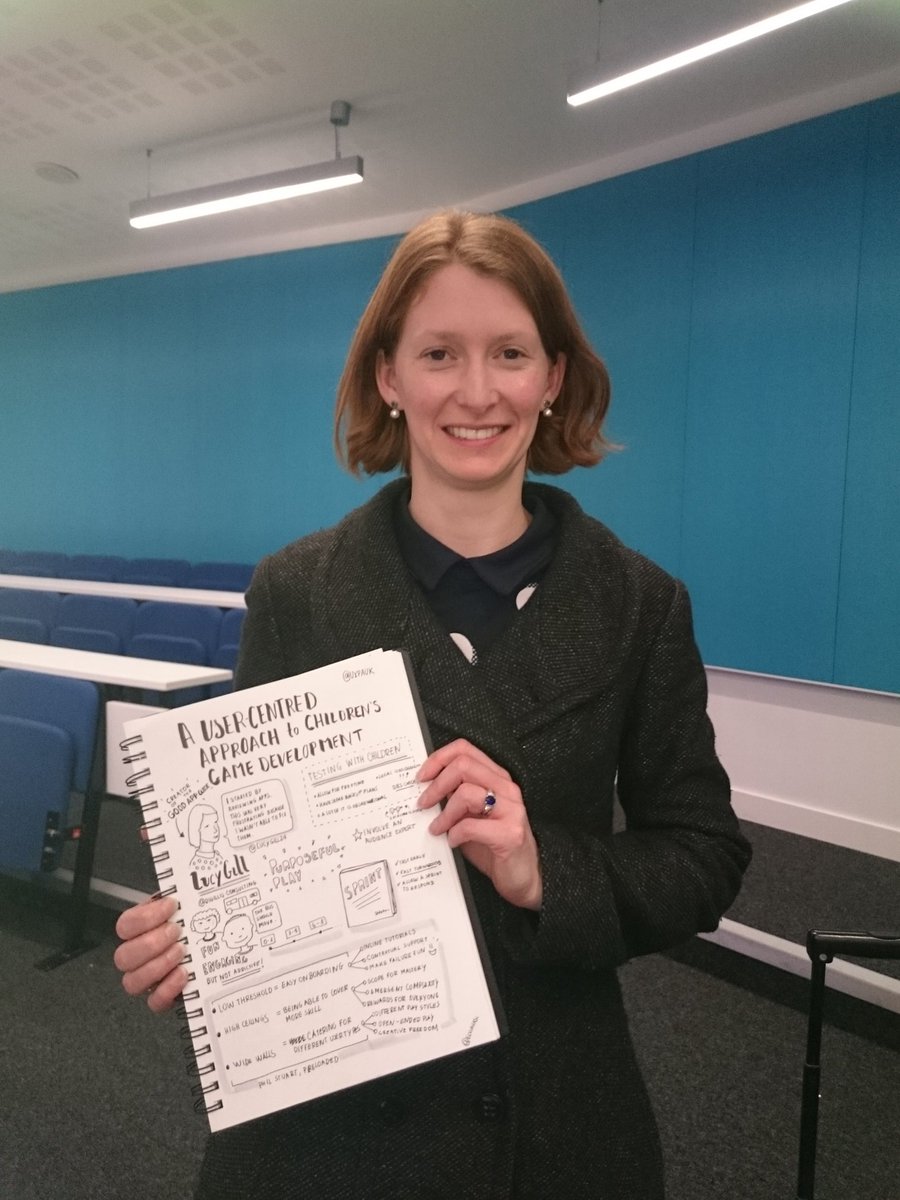 @UXPAUK
A USER-CENTRED
APPROACH to CHILDREN'S
GAME DEVELOPMENT
CREATOR
OF THE
GOOD APP GUIDE
I STARTED BY
REVIEWING APPS.
THIS WAS VERY
FRUSTRATING BECAUSE
I WASN'T ABLE TO FIX
THEM.
@LUCYGILL24
LUCY GILL
@DIGILLS CONSULTING
TESTING WITH CHILDREN
• ALLOW FOR
• HAVE SOME BACKUP PLANS
INVOLVE AN
AUDIENCE EXPERT
PURPOSEFUL
PLAY
SPRINT
ALLOW A SPRINT
TO RESPOND
THE BUS
SHOULD
MOVE
FUN
ENGAGING
BUT NOT ADDICTIVE!
• LOW THRESHOLD = EASY ONBOARDING
ONLINE TUTORIALS
CONTEXTUAL SUPPORT
MAKE FAILURE FUN
• HIGH CEILINGS = BEING ABLE TO COVER
MORE SKILL
SCOPE FOR MASTERY
EMERGENT COMPLEXITY
REWARDS FOR EVERYONE
• WIDE WALLS = CATERING FOR
DIFFERENT USERTYPES
DIFFERENT PLAY STYLES
OPEN-ENDED PLAY
CREATIVE FREEDOM
PHIL STUART, PRELOADED